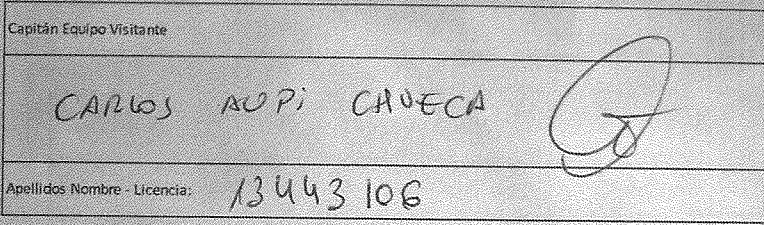 Capitán Equipo Visitante
CARLOS AUPi CHUECA
Apellidos Nombre - Licencia: 13443106